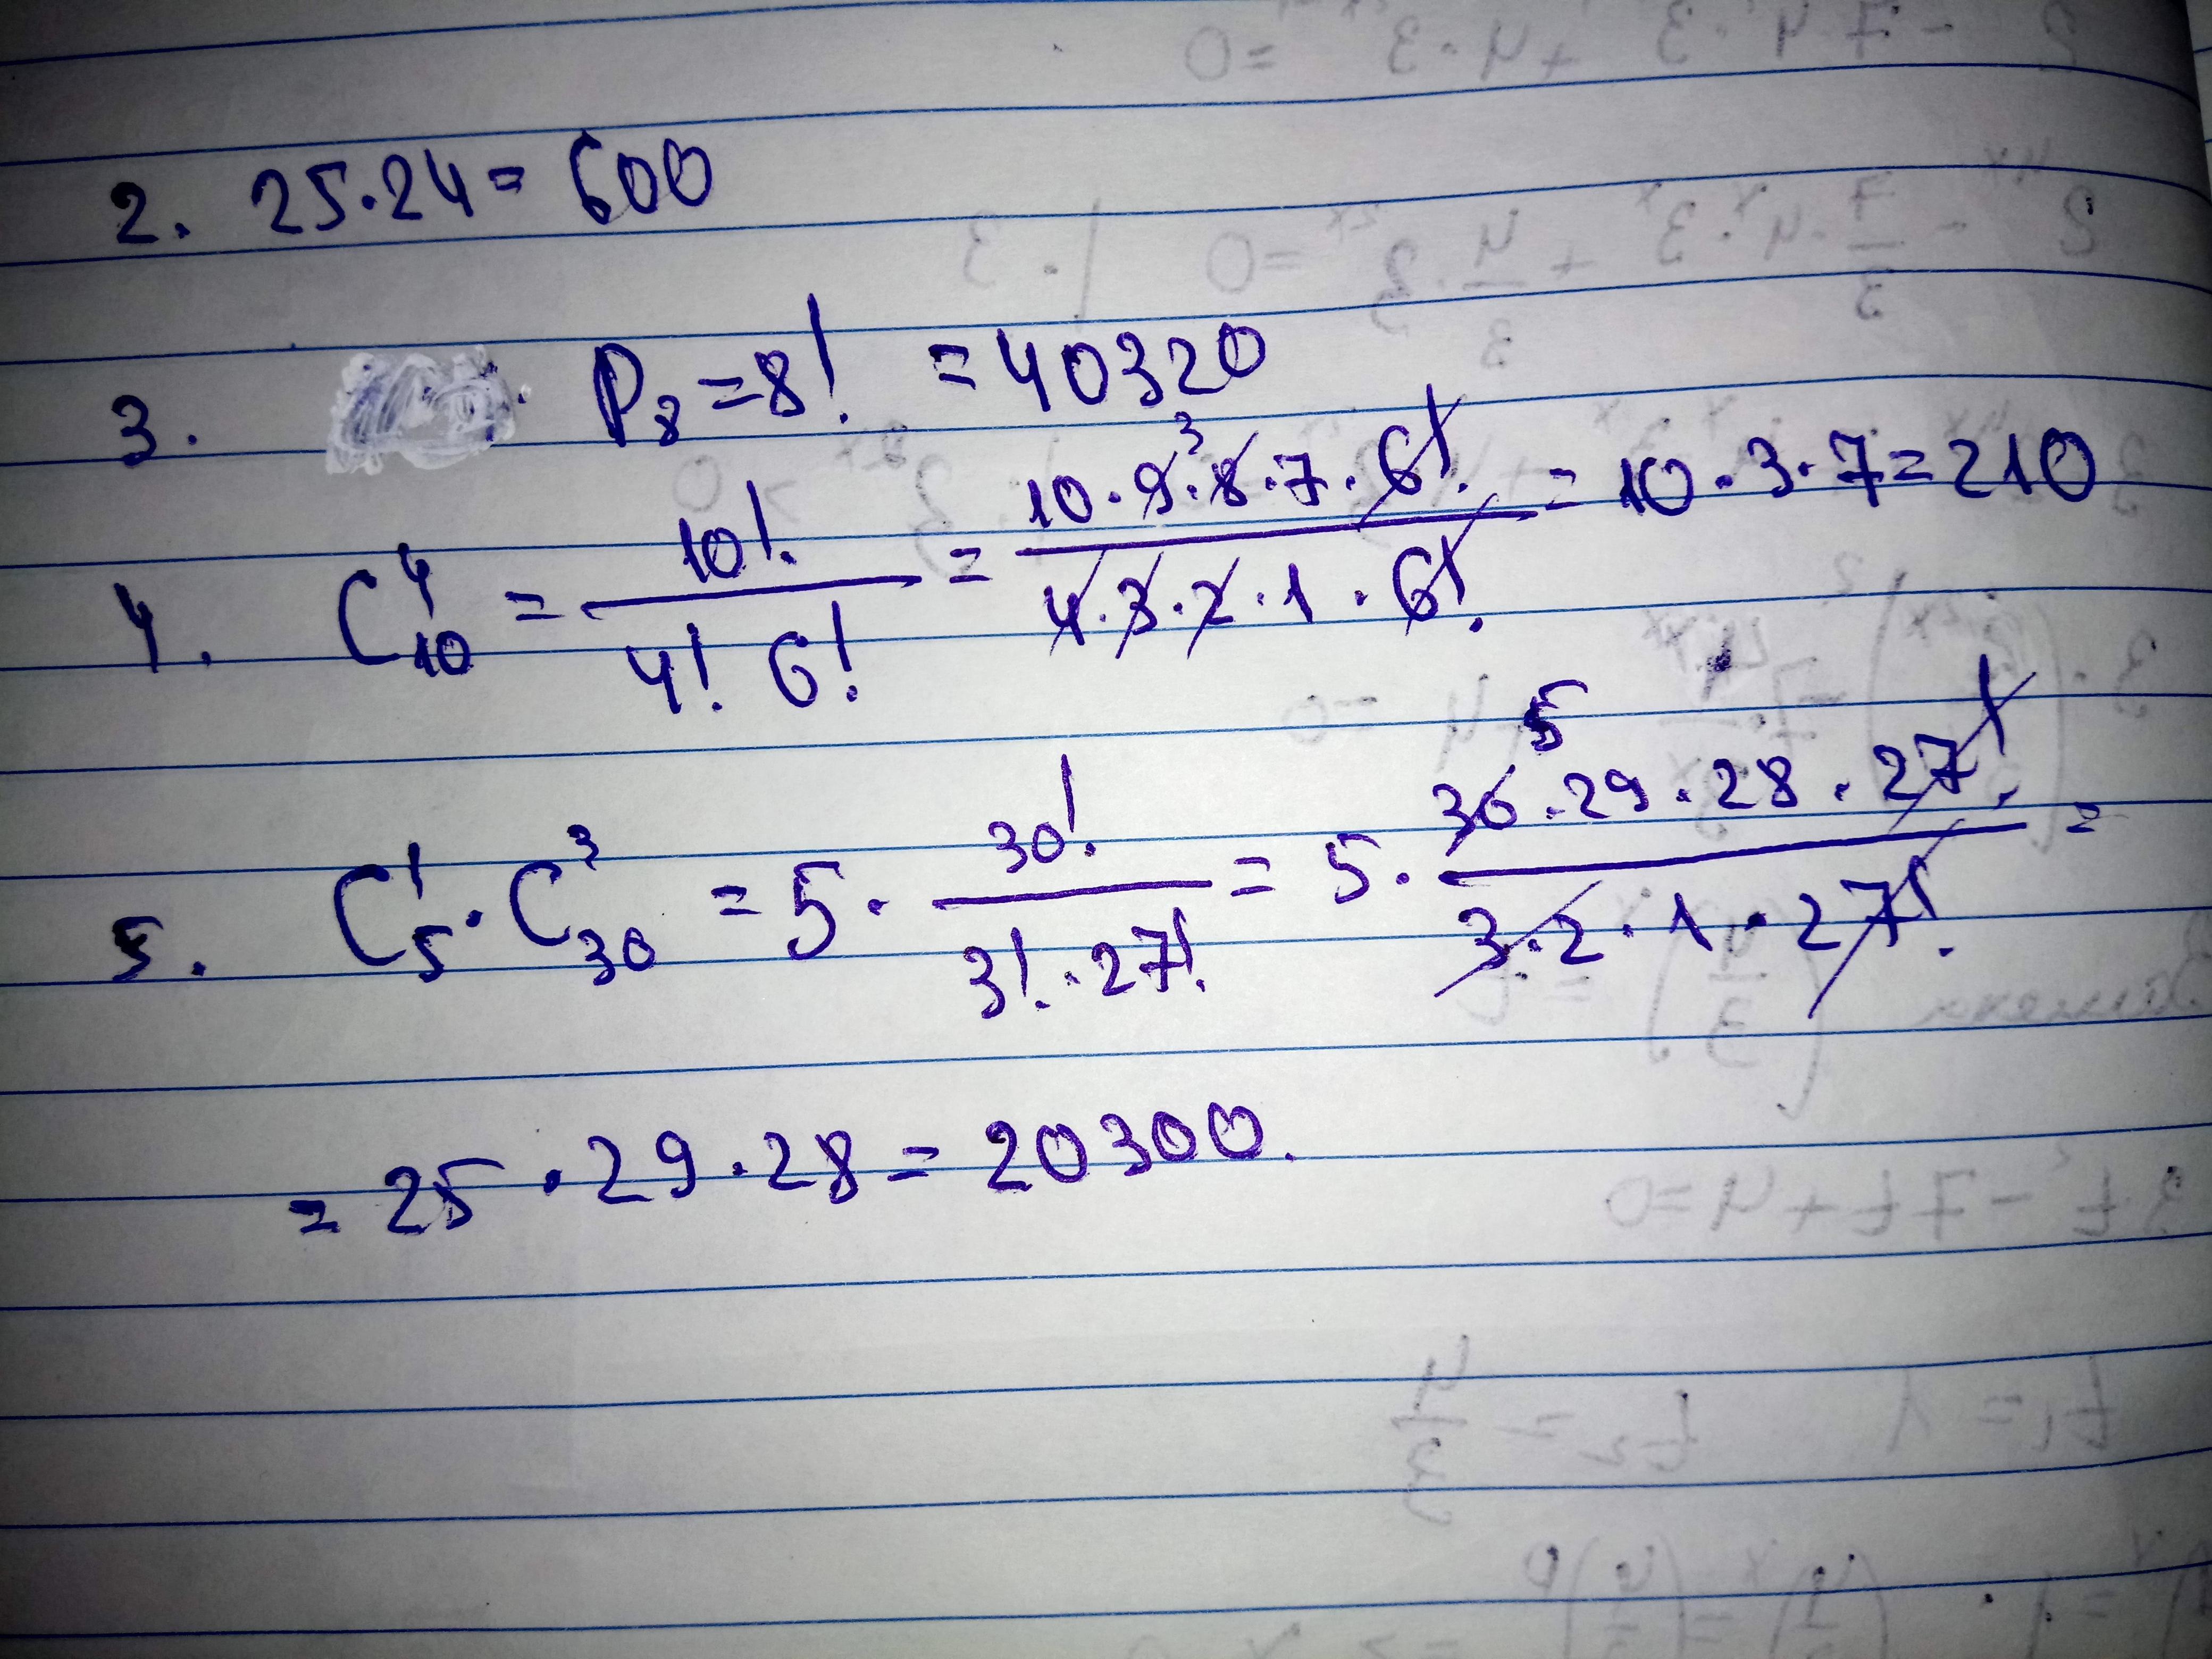 2. 25·24 = 600
3. P₈ = 8! = 40320
4. C⁴₁₀ = 10! / 4! 6! = 10·9³·8·7·6! / 4·3·2·1·6! = 10·3·7 = 210
5. C¹₅ · C³₃₀ = 5 · 30! / 3!·27! = 5 · 30⁵·29·28·27! / 3·2·1·27! =
= 25·29·28 = 20300.